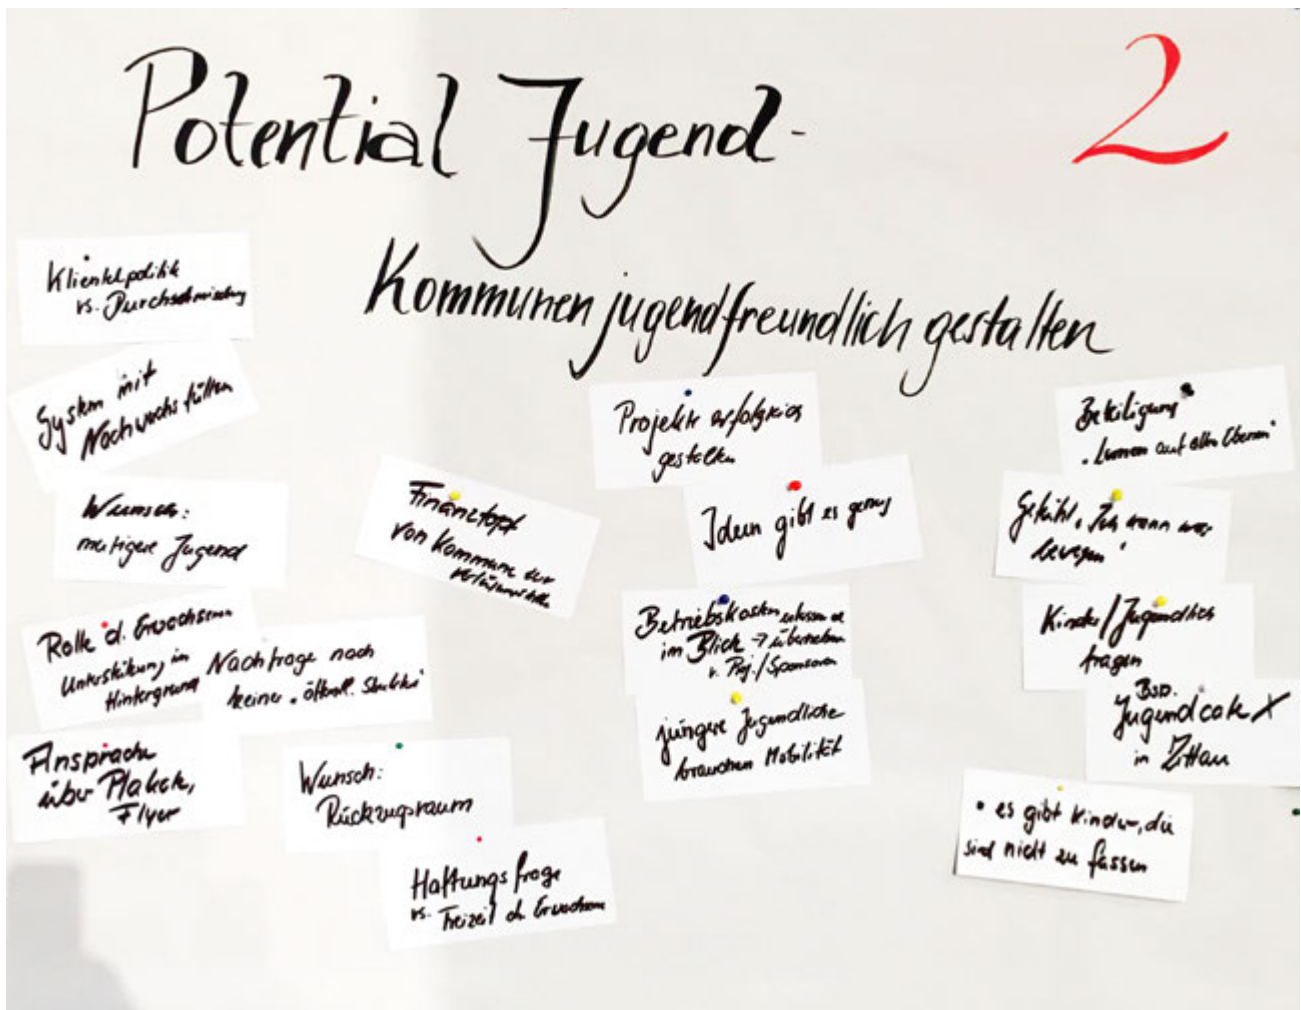 Potential Jugend-
2
Kommunen jugendfreundlich gestalten
Klientelpolitik
vs. Durchschmischung
System mit
Nachwuchs füllen
Wunsch:
mutigere Jugend
Rolle d. Erwachsenen
Unterstützung im
Hintergrund
Nachfrage nach
keiner "öffentl.
Ansprache
über Plakate,
Flyer
Wunsch:
Rückzugsraum
Haftungsfrage
vs. Freizeit d. Erwachsenen
Finanztopf
von Kommune zur
Projekte erfolgreich
gestalten
Ideen gibt es genug
Betriebskosten
im Blick → übernehmen
v. Proj./Sponsoren
jüngere Jugendliche
brauchen Mobilität
Beteiligung
"Lernen auf allen Ebenen"
Gefühl "Ich kann was
bewegen"
Kinder/Jugendlich
fragen
Bsp.
Jugendcafe X
in Zittau
• es gibt Kinder, die
sind nicht zu fassen